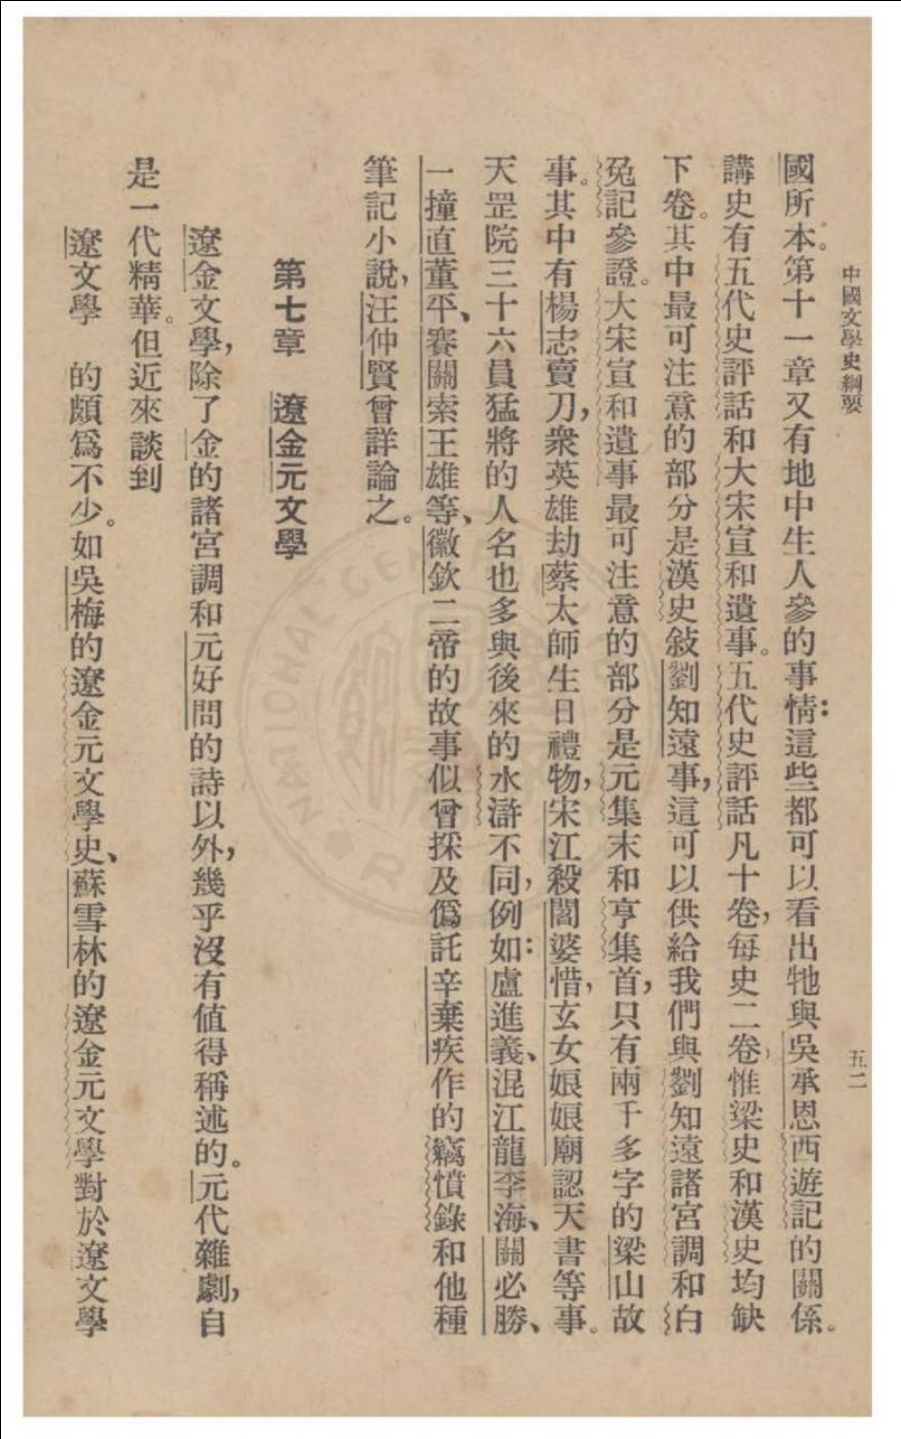 中國文學史綱要
五二
國所本。第十一章又有地中生人參的事情：這些都可以看出牠與吳承恩西遊記的關係。
講史有五代史評話和大宋宣和遺事。五代史評話凡十卷，每史二卷，惟梁史和漢史均缺
下卷。其中最可注意的部分是漢史敍劉知遠事，這可以供給我們與劉知遠諸宮調和白
兔記參證。大宋宣和遺事最可注意的部分是元集末和亨集首，只有兩千多字的梁山故
事。其中有楊志賣刀，衆英雄劫蔡太師生日禮物，宋江殺閻婆惜，玄女娘娘廟認天書等事。
天罡院三十六員猛將的人名也多與後來的水滸不同，例如：盧進義、混江龍李海、關必勝、
一撞直董平、賽關索王雄等、徽欽二帝的故事似曾採及僞託辛棄疾作的竊憤錄和他種
筆記小說，汪仲賢曾詳論之。
第七章　遼金元文學
遼金文學，除了金的諸宮調和元好問的詩以外，幾乎沒有值得稱述的。元代雜劇，自
是一代精華。但近來談到
遼文學　的頗爲不少。如吳梅的遼金元文學史、蘇雪林的遼金元文學對於遼文學
NATIONAL CENTRAL